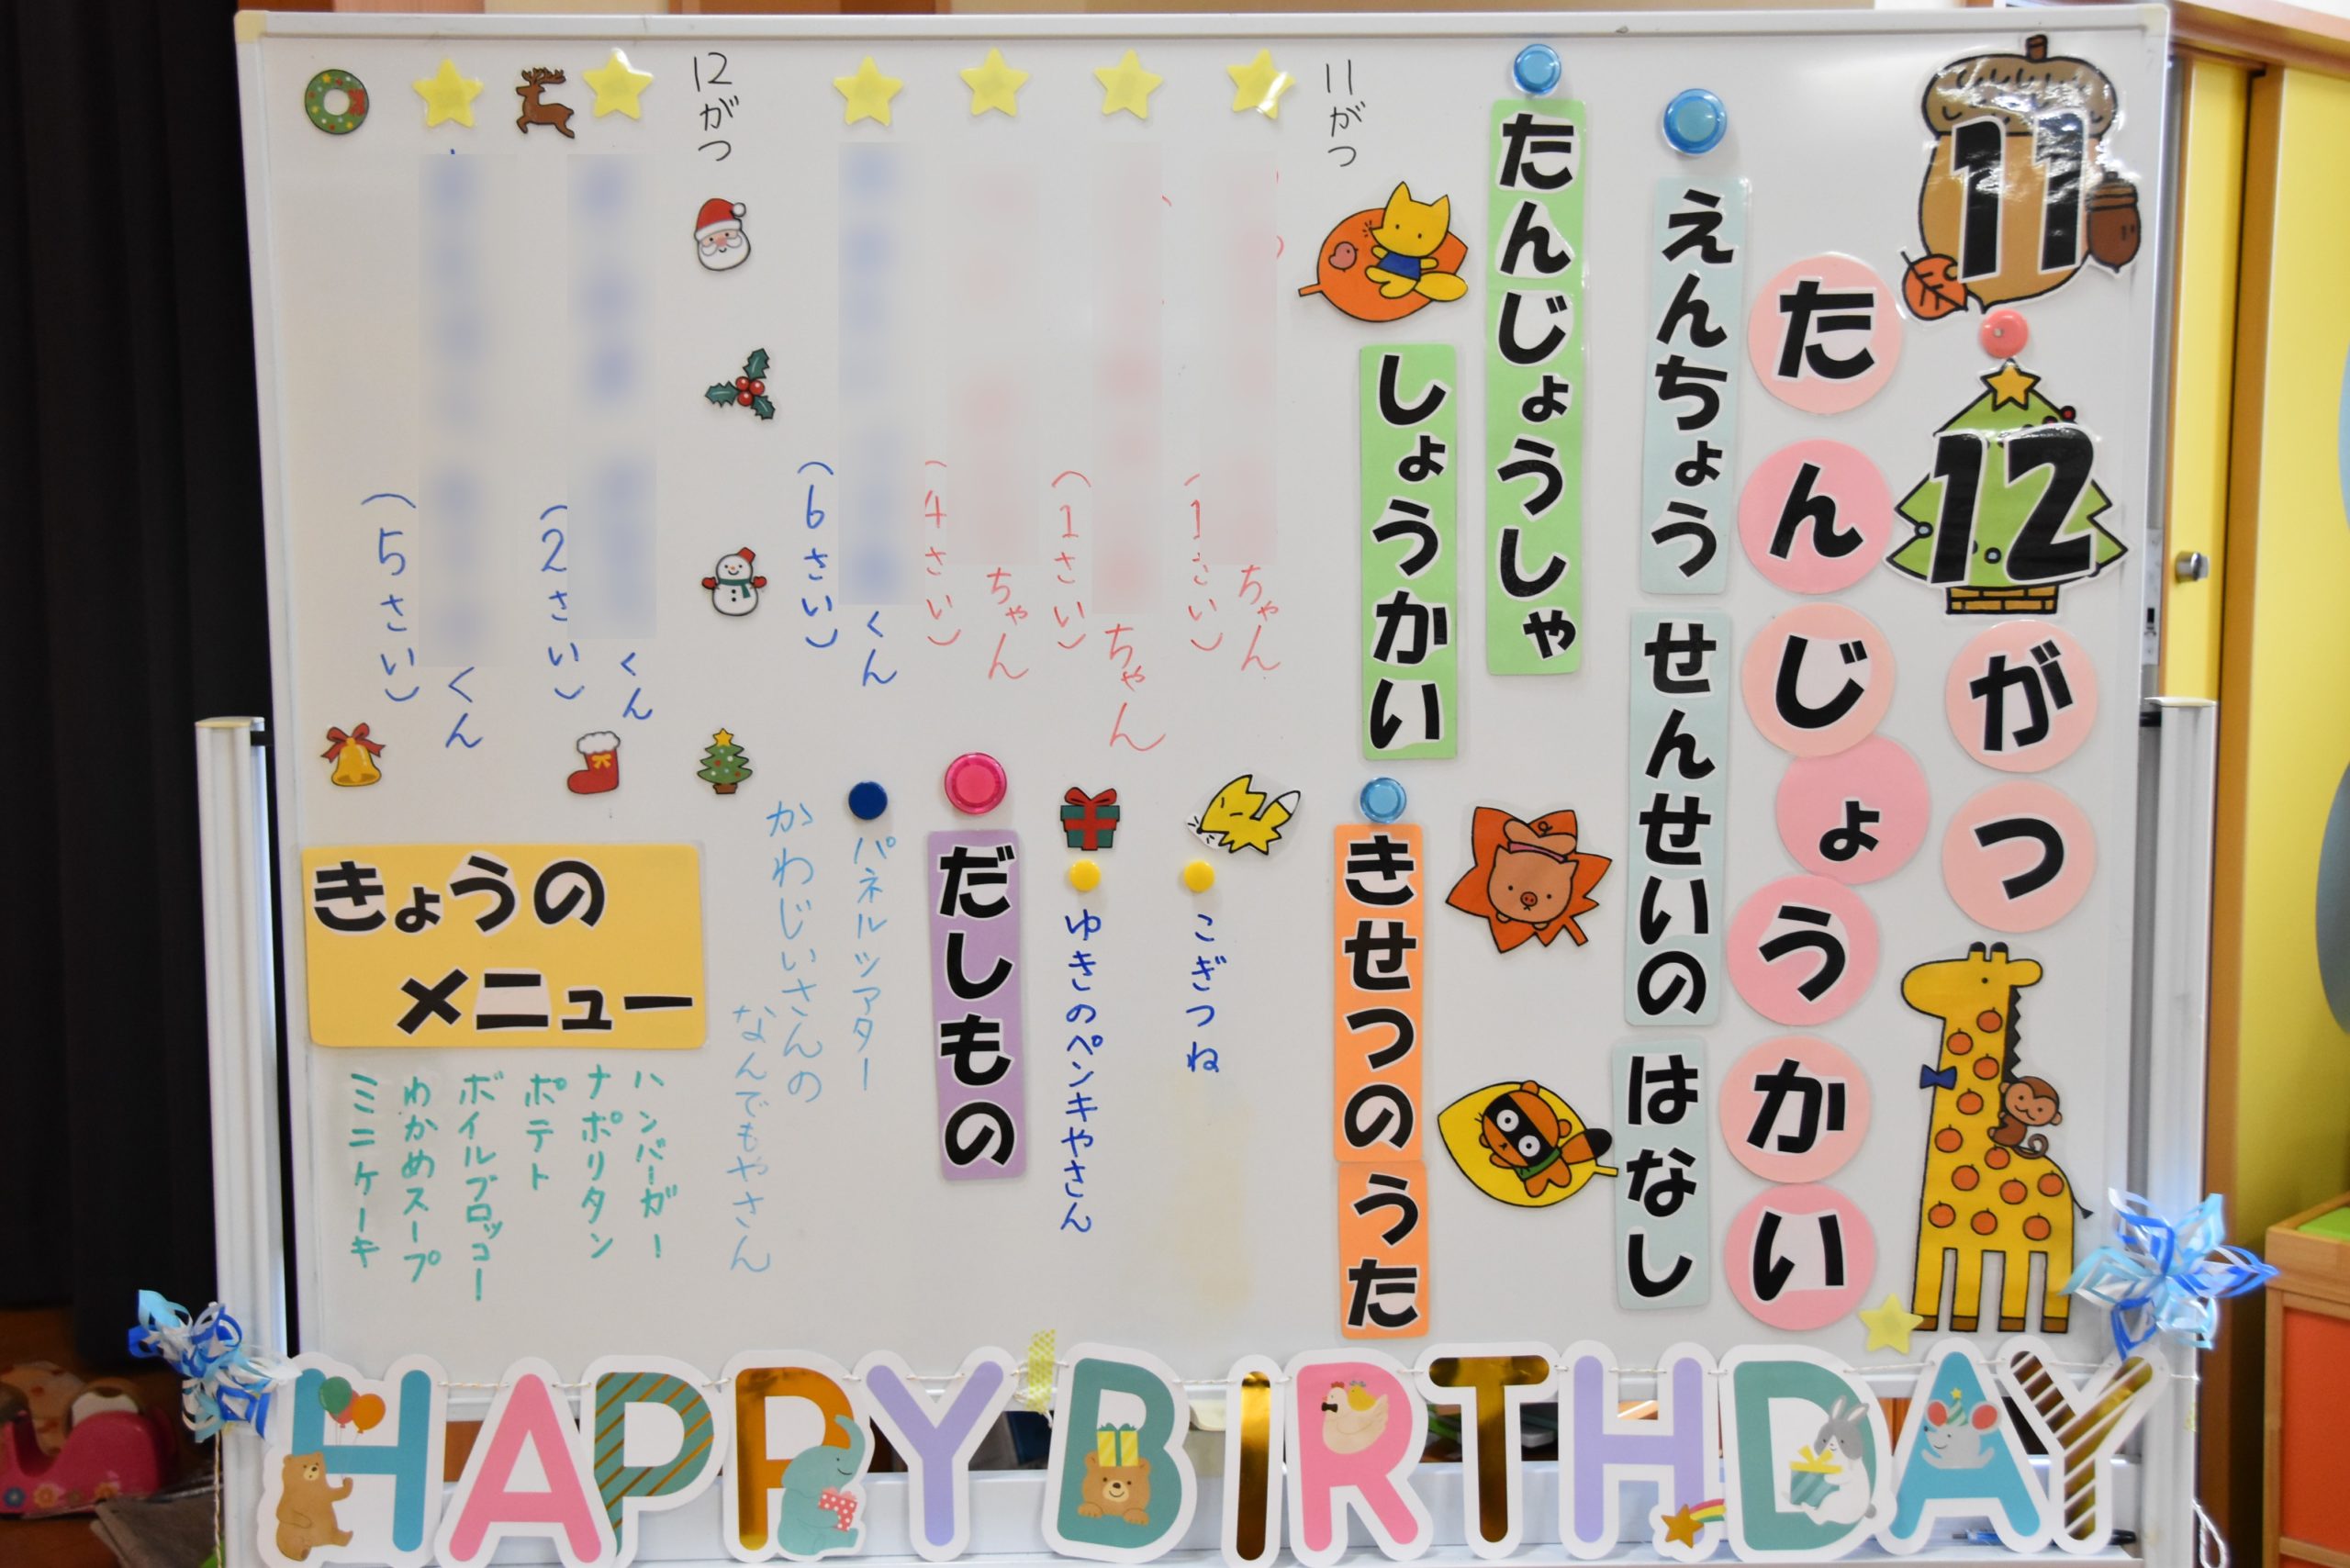 11
12がつ
たんじょうかい
えんちょう
せんせいの
はなし
たんじょうしゃ
しょうかい
11がつ
ちゃん
(1さい)
ちゃん
(1さい)
ちゃん
(4さい)
くん
(6さい)
12がつ
くん
(2さい)
くん
(5さい)
きせつのうた
こぎつね
ゆきのペンキやさん
だしもの
パネルツアター
かわじいさんの
なんでもやさん
きょうの
メニュー
ハンバーガー
ナポリタン
ポテト
ボイルブロッコー
わかめスープ
ミニケーキ
HAPPY BIRTHDAY